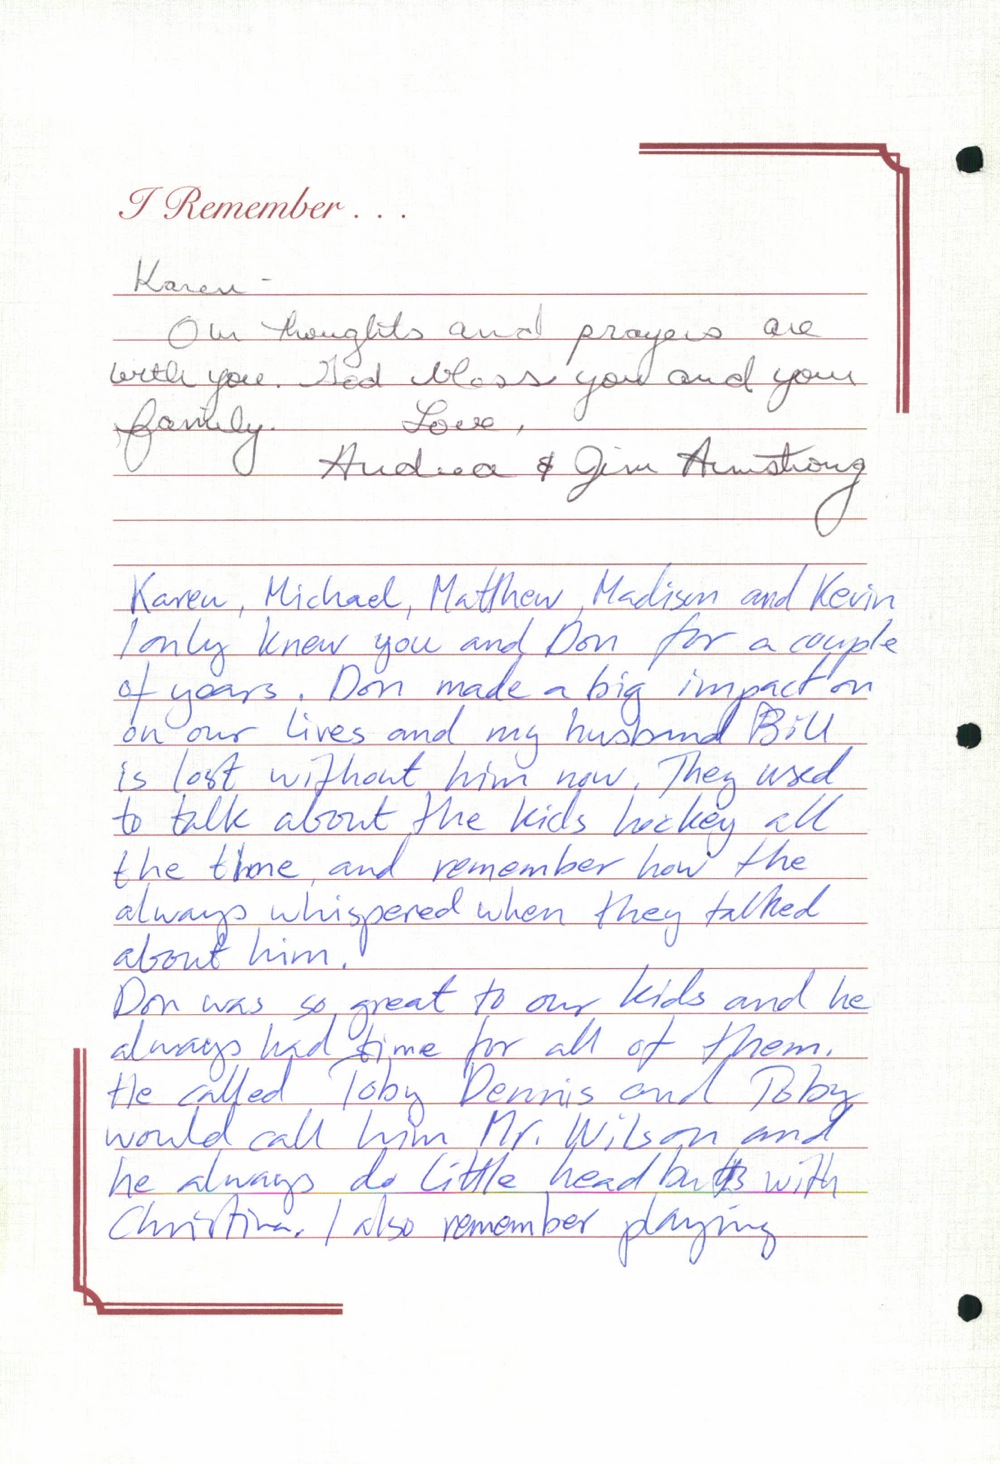 I Remember . . .
Karen -
Our thoughts and prayers are
with you. God bless you and your
family. Love,
Andrea & Jim Armstrong
Karen, Michael, Matthew, Madison and Kevin
I only knew you and Don for a couple
of years. Don made a big impact on
on our lives and my husband Bill
is lost without him now. They used
to talk about the kids hockey all
the time, and remember how the
always whispered when they talked
about him.
Don was so great to our kids and he
always had time for all of them.
He called Toby Dennis and Toby
would call him Mr. Wilson and
he always do little head butts with
Christina. I also remember playing